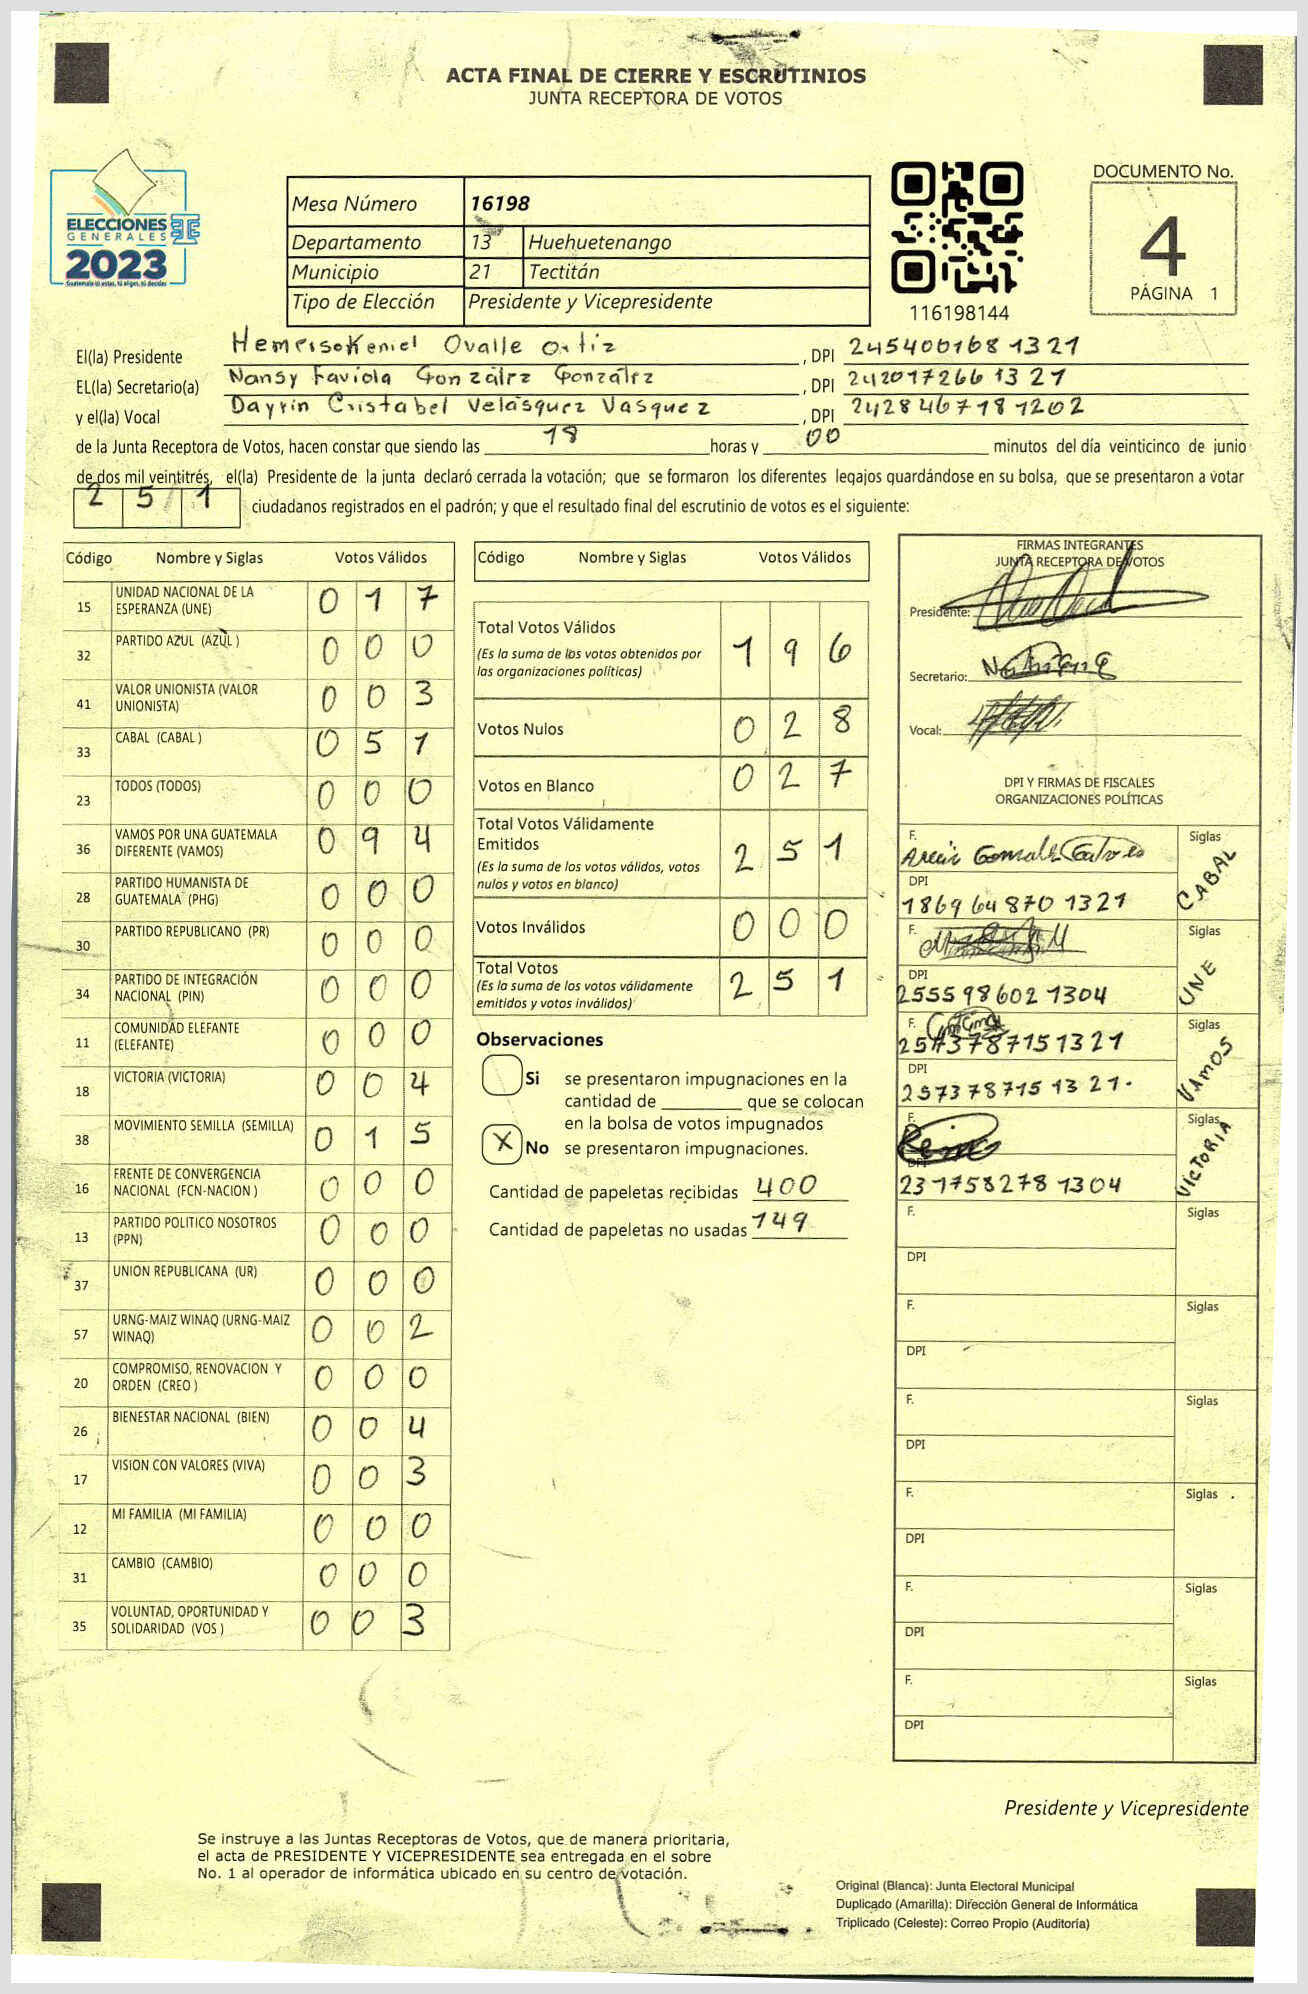 ACTA FINAL DE CIERRE Y ESCRUTINIOS
JUNTA RECEPTORA DE VOTOS
ELECCIONES
GENERALES
2023
Guatemala tú estas, tú eliges, tú decides
Mesa Número 16198
Departamento 13 Huehuetenango
Municipio 21 Tectitán
Tipo de Elección Presidente y Vicepresidente
116198144
DOCUMENTO No.
4
PÁGINA 1
El(la) Presidente Ovalle Ortiz, DPI 245400168 1321
EL(la) Secretario(a) Nansy Faviola González González, DPI 242017266 1321
y el(la) Vocal Dayrin Cristabel Velásquez Vasquez, DPI 242846718 1202
de la Junta Receptora de Votos, hacen constar que siendo las 18 horas y 00 minutos del día veinticinco de junio
de dos mil veintitrés, el(la) Presidente de la junta declaró cerrada la votación; que se formaron los diferentes legajos guardándose en su bolsa, que se presentaron a votar
2 5 1 ciudadanos registrados en el padrón; y que el resultado final del escrutinio de votos es el siguiente:
Código Nombre y Siglas Votos Válidos
15 UNIDAD NACIONAL DE LA ESPERANZA (UNE) 0 1 7
32 PARTIDO AZUL (AZUL ) 0 0 0
41 VALOR UNIONISTA (VALOR UNIONISTA) 0 0 3
33 CABAL (CABAL ) 0 5 1
23 TODOS (TODOS) 0 0 0
36 VAMOS POR UNA GUATEMALA DIFERENTE (VAMOS) 0 9 4
28 PARTIDO HUMANISTA DE GUATEMALA (PHG) 0 0 0
30 PARTIDO REPUBLICANO (PR) 0 0 0
34 PARTIDO DE INTEGRACIÓN NACIONAL (PIN) 0 0 0
11 COMUNIDAD ELEFANTE (ELEFANTE) 0 0 0
18 VICTORIA (VICTORIA) 0 0 4
38 MOVIMIENTO SEMILLA (SEMILLA) 0 1 5
16 FRENTE DE CONVERGENCIA NACIONAL (FCN-NACION ) 0 0 0
13 PARTIDO POLITICO NOSOTROS (PPN) 0 0 0
37 UNION REPUBLICANA (UR) 0 0 0
57 URNG-MAIZ WINAQ (URNG-MAIZ WINAQ) 0 0 2
20 COMPROMISO, RENOVACION Y ORDEN (CREO ) 0 0 0
26 BIENESTAR NACIONAL (BIEN) 0 0 4
17 VISION CON VALORES (VIVA) 0 0 3
12 MI FAMILIA (MI FAMILIA) 0 0 0
31 CAMBIO (CAMBIO) 0 0 0
35 VOLUNTAD, OPORTUNIDAD Y SOLIDARIDAD (VOS ) 0 0 3
Código Nombre y Siglas Votos Válidos
Total Votos Válidos 1 9 6
(Es la suma de los votos obtenidos por
las organizaciones políticas)
Votos Nulos 0 2 8
Votos en Blanco 0 2 7
Total Votos Válidamente
Emitidos 2 5 1
(Es la suma de los votos válidos, votos
nulos y votos en blanco)
Votos Inválidos 0 0 0
Total Votos 2 5 1
(Es la suma de los votos válidamente
emitidos y votos inválidos)
Observaciones
Si se presentaron impugnaciones en la
cantidad de ________ que se colocan
en la bolsa de votos impugnados
X No se presentaron impugnaciones.
Cantidad de papeletas recibidas 400
Cantidad de papeletas no usadas 149
FIRMAS INTEGRANTES
JUNTA RECEPTORA DE VOTOS
Presidente:
Secretario:
Vocal:
DPI Y FIRMAS DE FISCALES
ORGANIZACIONES POLÍTICAS
F. Siglas CABAL
DPI
1869 64870 1321
F. Siglas UNE
DPI
255598602 1304
F. Siglas VAMOS
257378715 1321
DPI
257378715 1321.
F. Siglas VICTORIA
DPI
231758278 1304
F. Siglas
DPI
F. Siglas
DPI
F. Siglas
DPI
F. Siglas
DPI
F. Siglas
DPI
F. Siglas
DPI
Presidente y Vicepresidente
Se instruye a las Juntas Receptoras de Votos, que de manera prioritaria,
el acta de PRESIDENTE Y VICEPRESIDENTE sea entregada en el sobre
No. 1 al operador de informática ubicado en su centro de votación.
Original (Blanca): Junta Electoral Municipal
Duplicado (Amarilla): Dirección General de Informática
Triplicado (Celeste): Correo Propio (Auditoría)